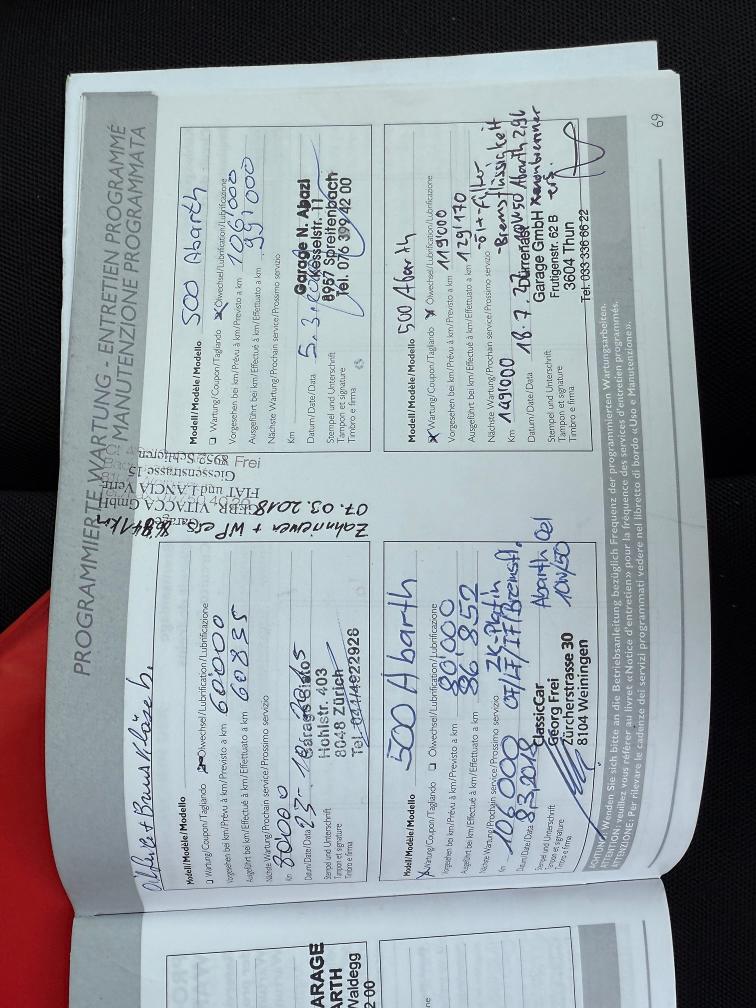 PROGRAMMIERTE WARTUNG - ENTRETIEN PROGRAMMÉ
MANUTENZIONE PROGRAMMATA
Modell/Modèle/Modello
Wartung/Coupon/Tagliando Ölwechsel/Lubrification/Lubrificazione
Vorgesehen bei km/Prévu à km/Previsto a km 60'000
Ausgeführt bei km/Effectué à km/Effettuato a km 60835
Nächste Wartung/Prochain service/Prossimo servizio
Km 80'000
Datum/Date/Data
Stempel und Unterschrift
Tampon et signature
Timbro e firma
Hohlstr. 403
8048 Zürich
Zahnriemen + WP
07.03.2018
Garage
GEBR. VITACCA GmbH
FIAT und LANCIA
Giessenstrasse 15
8952 Schlieren
Frei
Modell/Modèle/Modello 500 Abarth
Wartung/Coupon/Tagliando x Ölwechsel/Lubrification/Lubrificazione
Vorgesehen bei km/Prévu à km/Previsto a km 106'000
Ausgeführt bei km/Effectué à km/Effettuato a km 99'000
Nächste Wartung/Prochain service/Prossimo servizio
Km
Datum/Date/Data 5.3.
Stempel und Unterschrift
Tampon et signature
Timbro e firma
Garage N. Abazi
Kesselstr. 11
8957 Spreitenbach
Tel. 076 399 42 00
Modell/Modèle/Modello 500 Abarth
x Wartung/Coupon/Tagliando Ölwechsel/Lubrification/Lubrificazione
Vorgesehen bei km/Prévu à km/Previsto a km 80'000
Ausgeführt bei km/Effectué à km/Effettuato a km 86 852
Nächste Wartung/Prochain service/Prossimo servizio ZK-Platin
Km 106'000 OF/LF/IF/Bremsfl.
Datum/Date/Data 8.3.2018
Abarth Oel
10W/50
Stempel und Unterschrift
Tampon et signature
Timbro e firma
ClassicCar
Georg Frei
Zürcherstrasse 30
8104 Weiningen
Modell/Modèle/Modello 500 Abarth
x Wartung/Coupon/Tagliando x Ölwechsel/Lubrification/Lubrificazione
Vorgesehen bei km/Prévu à km/Previsto a km 119'000
Ausgeführt bei km/Effectué à km/Effettuato a km 129'170
Nächste Wartung/Prochain service/Prossimo servizio -Öl+Filter
Km 149'000 -Bremsflüssigkeit
Datum/Date/Data 18.7. 10W50 Abarth
Stempel und Unterschrift
Tampon et signature
Timbro e firma
Dürrenast
Garage GmbH
Frutigenstr. 62 B
3604 Thun
Tel. 033 336 66 22
ACHTUNG: Wenden Sie sich bitte an die Betriebsanleitung bezüglich Frequenz der programmierten Wartungsarbeiten.
ATTENTION: veuillez vous référer au livret «Notice d'entretien» pour la fréquence des services d'entretien programmés.
ATTENZIONE: Per rilevare le cadenze dei servizi programmati vedere nel libretto di bordo «Uso e Manutenzione».
69
ARAGE
ARTH
Waldegg
2 00